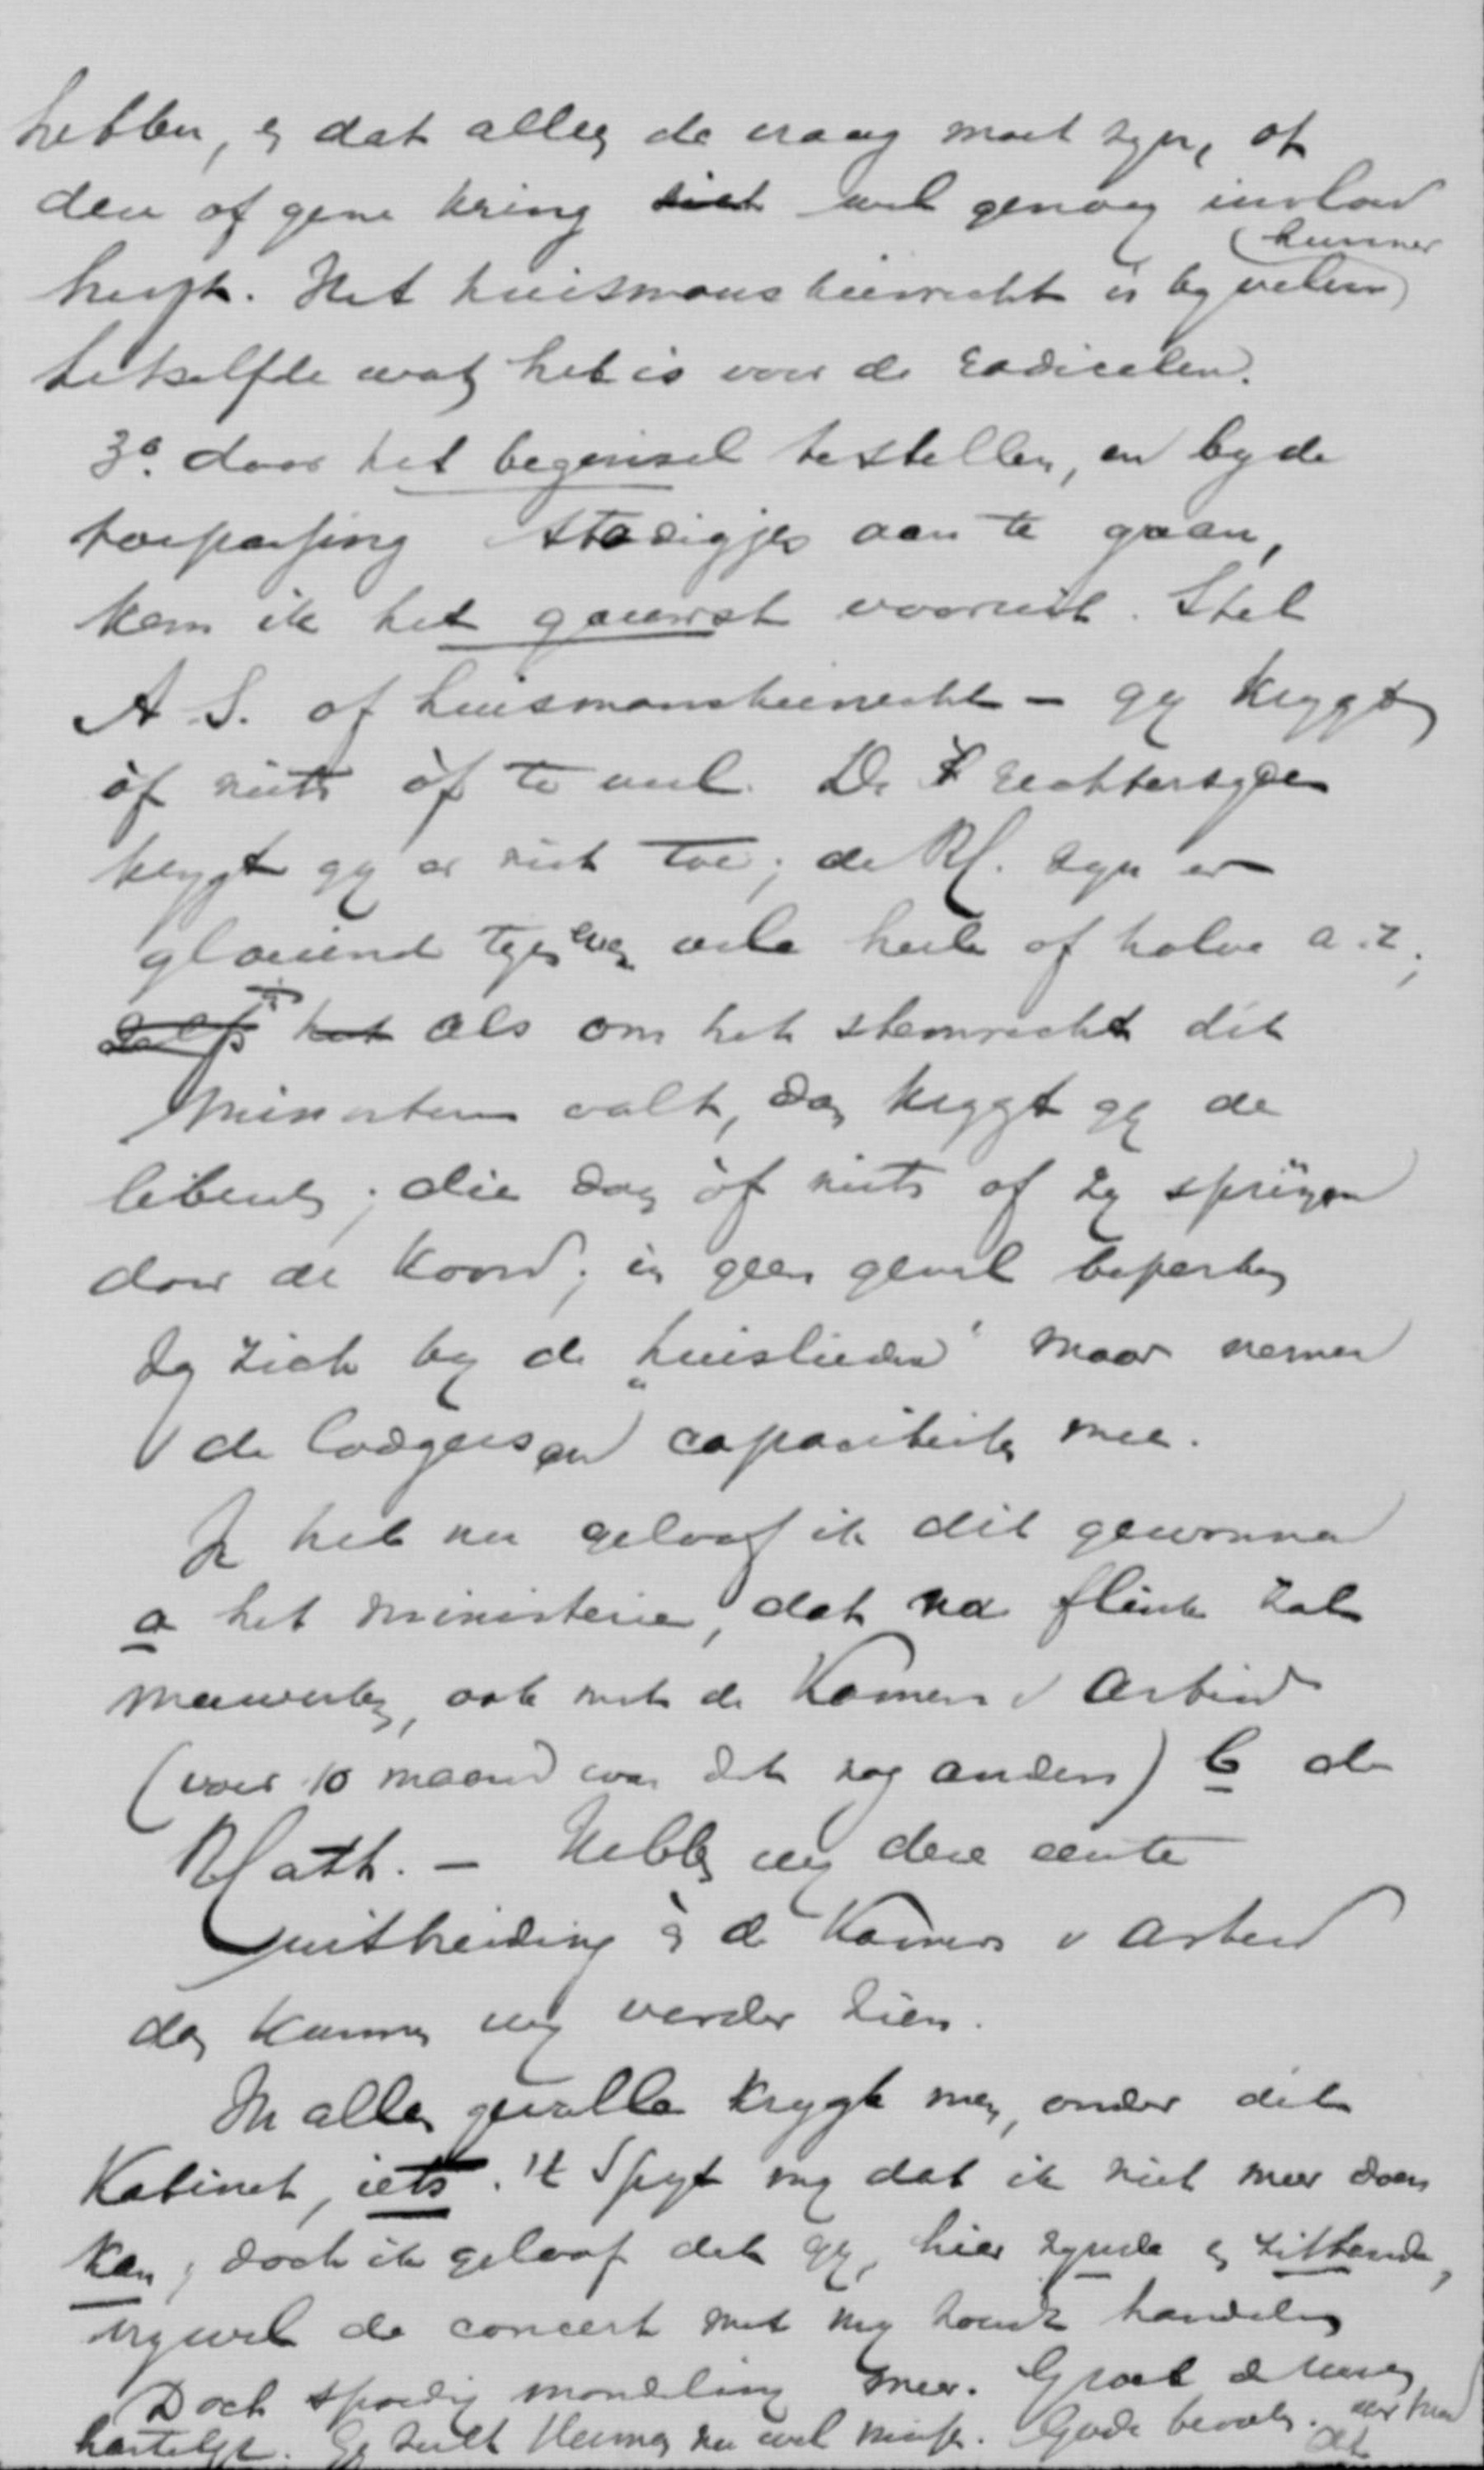 hebben, en dat alleen de vraag moet zyn, of
deze of gene kring niet veel genoeg invloed
heeft. Het huismanskiesrecht is by velen hunner
hetzelfde wat het is voor de radicalen.
3º. door het beginsel te stellen, en by de
toepassing stadigjes aan te gaan,
kom ik het gauwst vooruit. Stel
A. S. of huismanskiesrecht – gy krygt
òf niets òf te veel. De rechterzyde
krygt gy er niet toe; de RC. zyn er
gloeiend tegen, en vele heele of halve a.r.;
zelfs het als om het stemrecht dit
Ministerie valt, dan krygt gy de
liberalen; die doen òf niets of zy springen
door de koord; in geen geval beperken
zy zich by de „huislieden" maar nemen
de lodgers en capaciteiten mee.
Ik heb nu geloof ik dit gewonnen
a het ministerie, dat nu flink zal
meewerken, ook met de Kamers v Arbeid
(voor 10 maand was dat nog anders) b de
RCath. – Hebben wy deze eerste
uitbreiding en de Kamers v Arbeid
dan kunnen wy verder zien.
In alle gevalle krygt men, onder dit
Kabinet, iets. 't Spyt my dat ik niet meer doen
kan; doch ik geloof dat gy, hier zynde en zittende,
vrywel de concert met my zoudt handelen
Doch spoedig mondeling meer. Groet
hartelyk. Gy zult Heemsk nu wel missen. Gode bevolen.